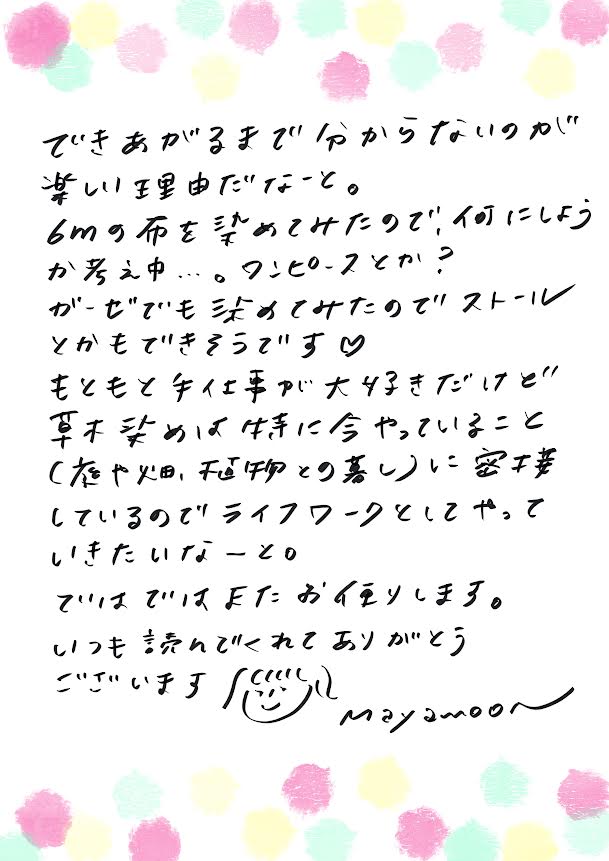 できあがるまで分からないのが
楽しい理由だなーと。
6mの布を染めてみたので、何にしよう
か考え中…。ワンピースとか?
ガーゼでも染めてみたのでストール
とかもできそうです♡
もともと手仕事が大好きだけど
草木染めは特に今やっていること
(庭や畑、植物との暮し)に密接
しているのでライフワークとしてやって
いきたいなーと。
ではではまたお便りします。
いつも読んでくれてありがとう
ございます
Mayamoon